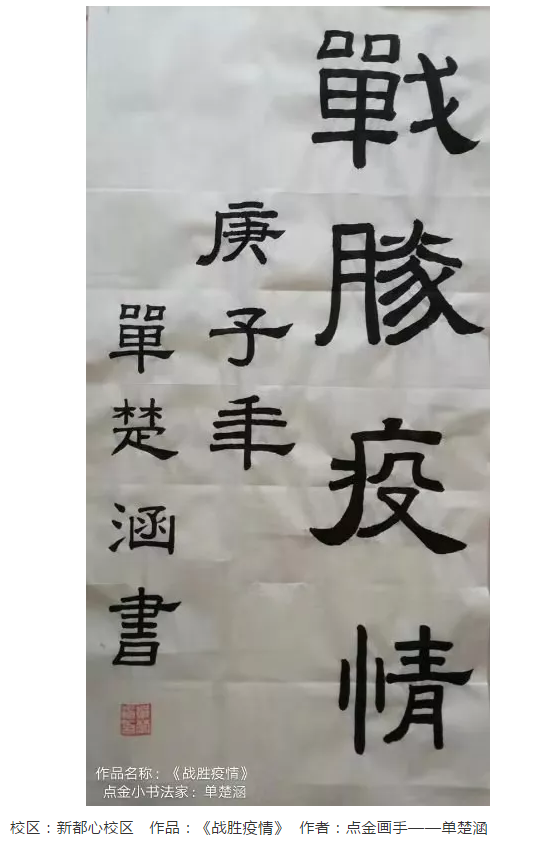 戰勝疫情
庚子年
單楚涵書
作品名称：《战胜疫情》
点金小书法家：单楚涵
校区：新都心校区 作品：《战胜疫情》 作者：点金画手——单楚涵